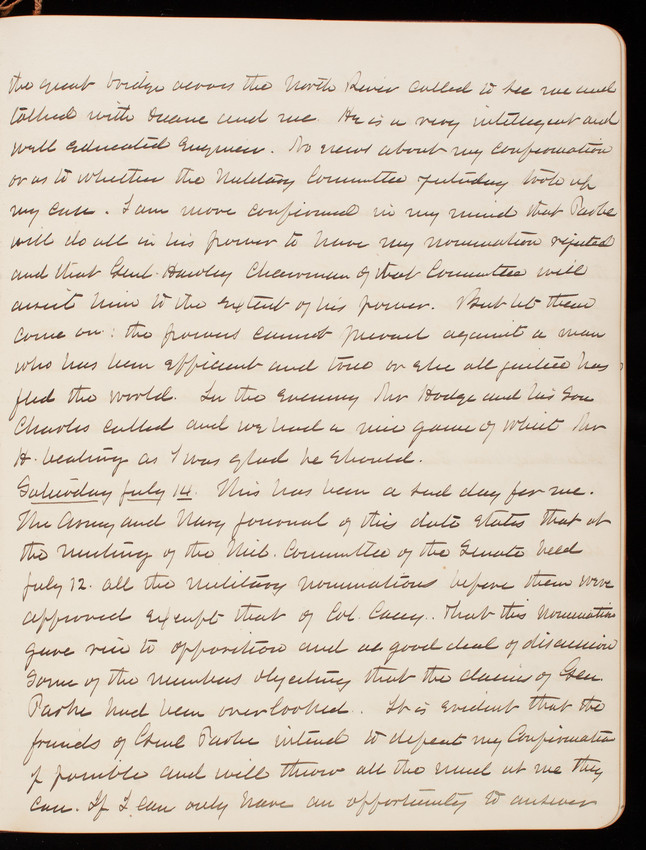 the great bridge across the North River called to see me and
talked with Duane and me He is a very intelligent and
well educated Engineer. No news about my confirmation
or as to whether the Military Committee yesterday took up
my case. I am more confirmed in my mind that Parke
will do all in his power to have my nomination rejected
and that Genl. Hawley Chairman of that Committee will
assist him to the extent of his power. But let them
come on: the powers cannot prevail against a man
who has been efficient and true or else all justice has
fled the world. In the Evening Mr Hodge and his Son
Charles called and we had a nice game of Whist Mr
H. beating as I was glad he should.
Saturday July 14. This has been a sad day for me.
The Army and Navy Journal of this date states that at
the meeting of the Mil. Committee of the Senate held
July 12. all the military nominations before them were
approved except that of Col. Casey. That this nomination
gave rise to opposition and a good deal of discussion
Some of the members objecting that the claims of Gen.
Parke had been overlooked. It is evident that the
friends of Genl Parke intend to defeat my Confirmation
if possible and will throw all the mud at me they
can. If I can only have an opportunity to answer